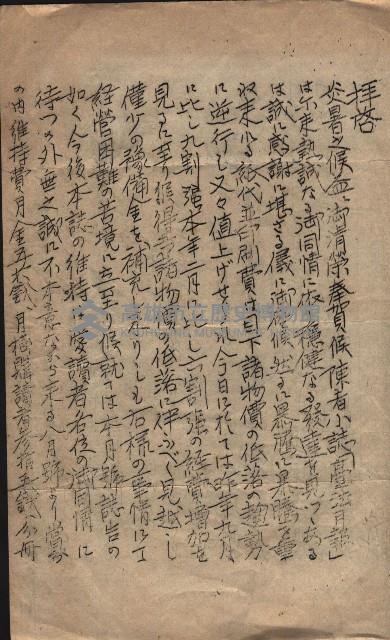 拝啓
炎暑之候益御清榮奉賀候陳者小誌「臺法月報」
は以来熱誠なる御同情に依り穏健なる發達を見つゝある
は誠に感謝に堪ざる儀に御座候然るに累騰に累騰を重
ね来れる紙代並印刷費は目下諸物價の低落の趨勢
に逆行し又々値上げせられ今日に於ては昨年九月
に比し九割張本年二月に比し二割張の經費増加を
見るに至り候得共諸物價の低落に伴ふべく見越し
僅少の豫備金を補充 なりしも右様の事情にて
經營困難の苦境に立至り候就ては本月號誌告の
如く今後本誌の維持 愛讀者各位の御同情に
待つの外無之誠に不本意ながら来る八月號より當分
の内維持費月金五十錢 月極購讀者 拾五錢 分冊
高雄市立歷史博物館